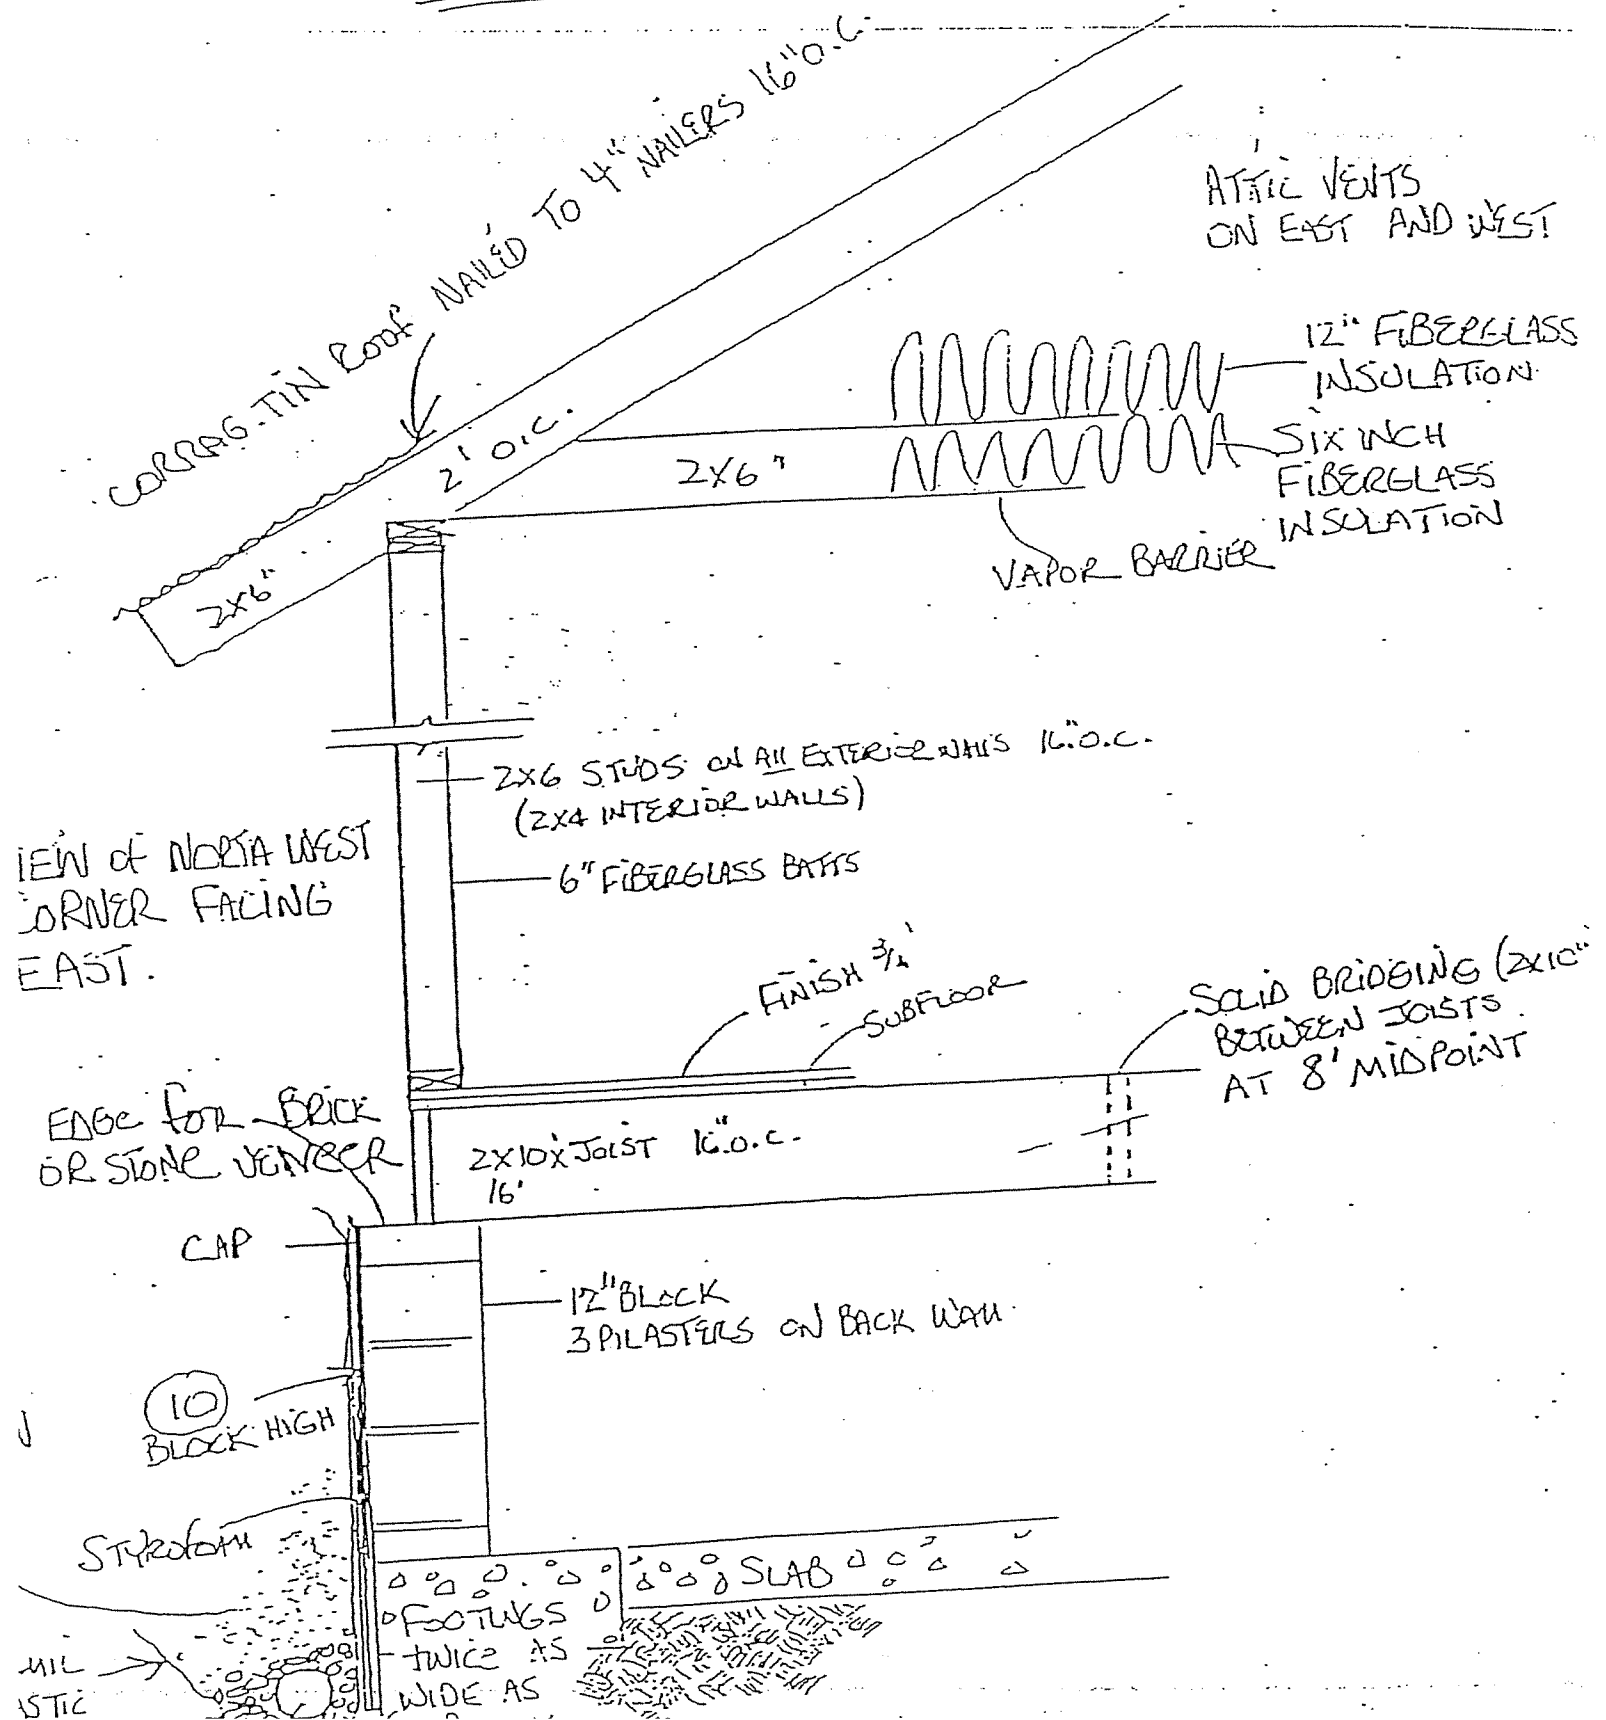 CORRAG-TIN ROOF NAILED TO 4" NAILERS 16" O.C.
ATTIC VENTS
ON EAST AND WEST
12" FIBERGLASS
INSULATION
2' O.C.
2X6"
SIX INCH
FIBERGLASS
INSULATION
VAPOR BARRIER
2X6"
2X6 STUDS ON All EXTERIOR WAllS 16" O.C.
(2X4 INTERIOR WALLS)
IEW of NORTH WEST
ORNER FACING
EAST.
6" FIBERGLASS BATTS
FINISH 3/4"
SUBFLOOR
SOLID BRIDGING (2X10"
BETWEEN JOISTS
AT 8' MIDPOINT
EDGE FOR BRICK
OR STONE VENEER
2X10X JOIST 16" O.C.
16'
CAP
12" BLOCK
3 PILASTERS ON BACK WAll
10
BLOCK HIGH
STYROFOAM
SLAB
FOOTINGS
TWICE AS
WIDE AS
MIL
STIC